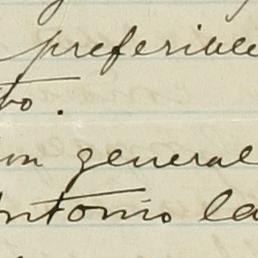 preferible
to.
on general
Antonio la